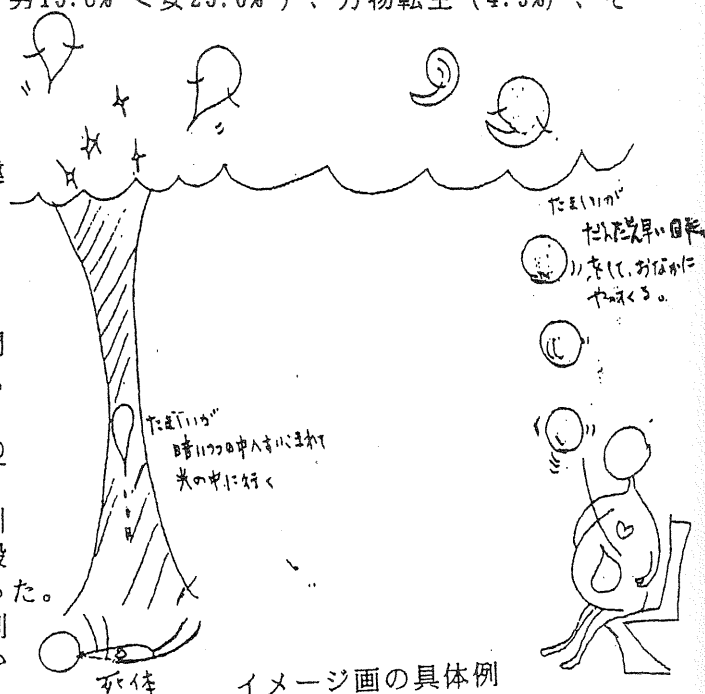 男13.6%<女23.0%)、万物転生(4.3%)、そ
たましいが
だんだん早い回転
をして、おなかに
やってくる。
たましいが
暗いつつの中へすいこまれて
光の中に行く
った。
死体
イメージ画の具体例